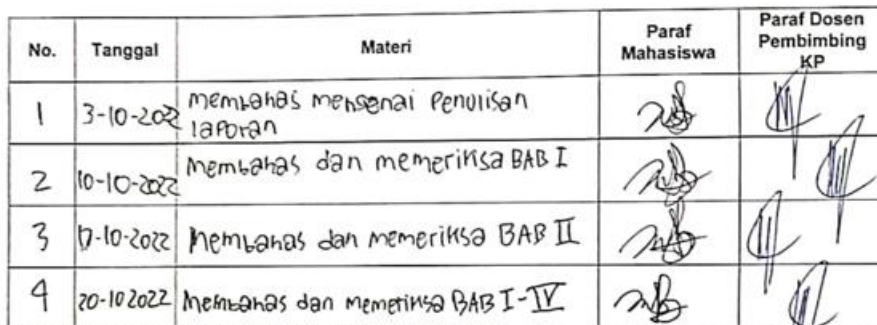 No. Tanggal Materi Paraf Mahasiswa Paraf Dosen Pembimbing KP
1 3-10-2022 membahas mengenai Penulisan
laporan
2 10-10-2022 Membahas dan memeriksa BAB I
3 17-10-2022 Membahas dan memeriksa BAB II
4 20-10 2022 Membahas dan memeriksa BAB I-IV